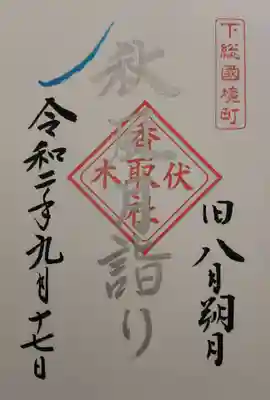 下総國境町
旧八月朔月
秋月詣り
伏木
香取社
令和二年九月十七日